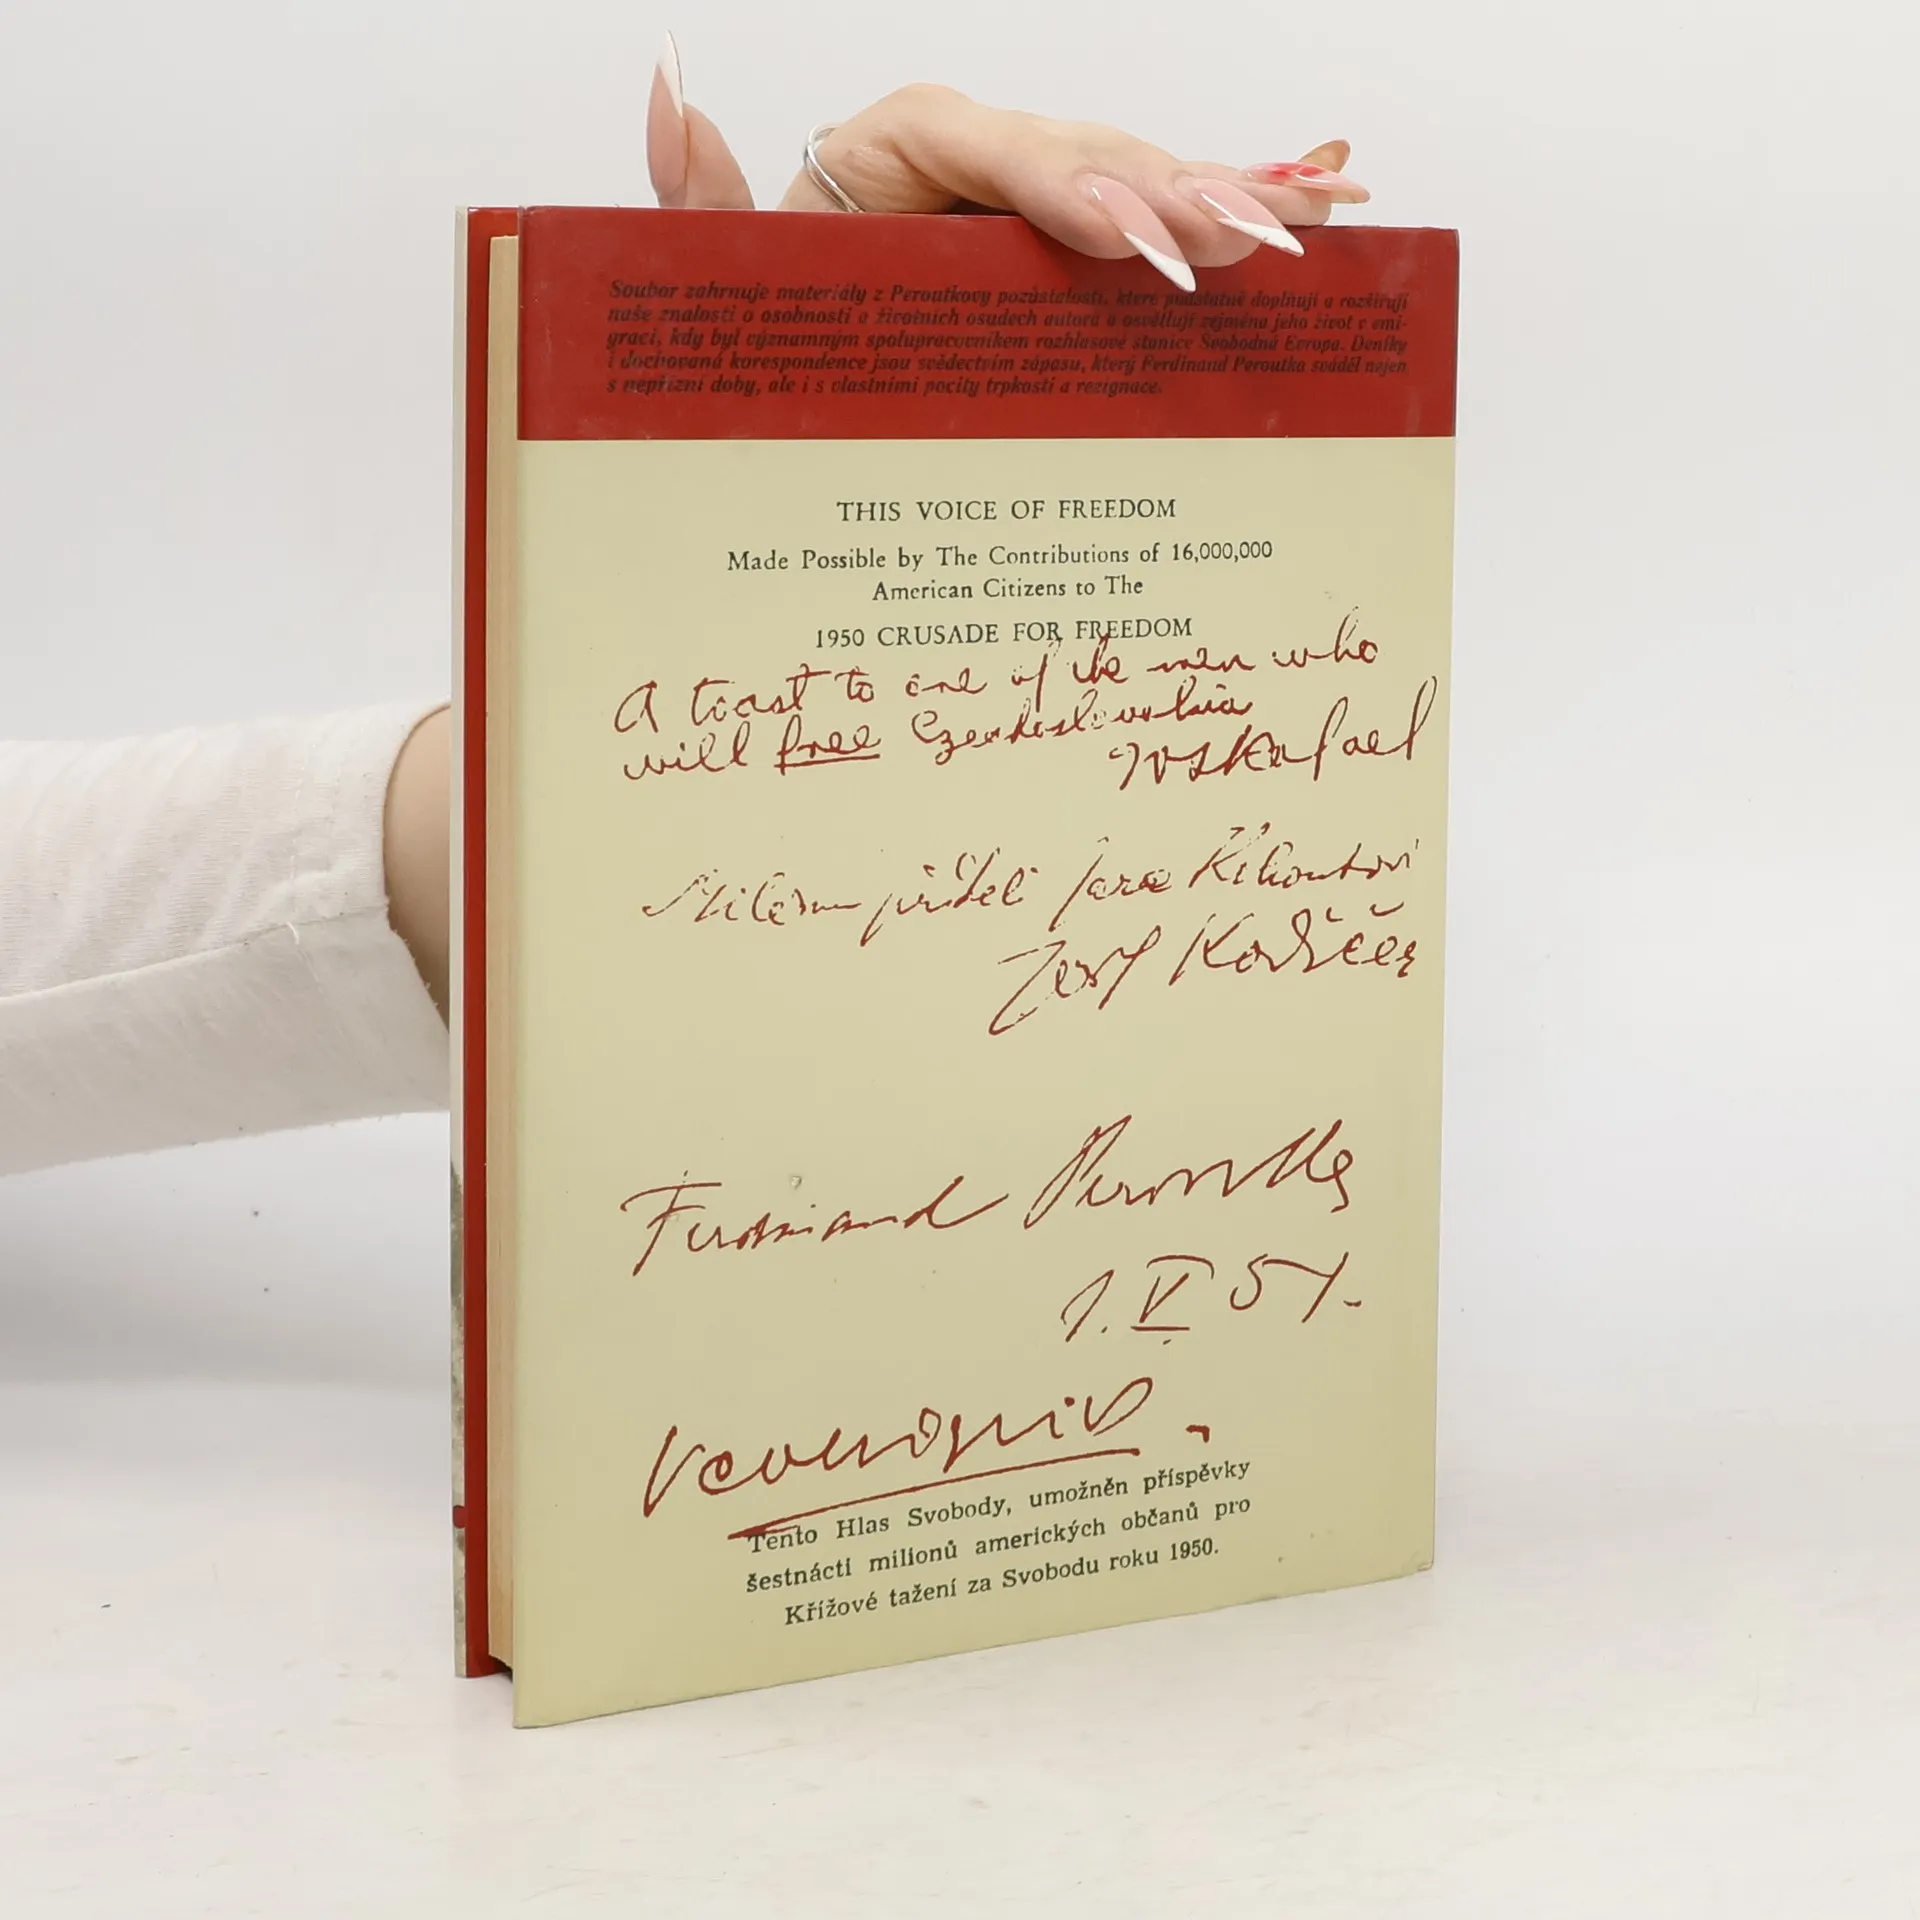 Soubor zahrnuje materiály z Peroutkovy pozůstalosti, které podstatně doplňují a rozšiřují
naše znalosti o osobnosti a životních osudech autora a osvětlují zejména jeho život v emi-
graci, kdy byl významným spolupracovníkem rozhlasové stanice Svobodná Evropa. Deníky
i dochovaná korespondence jsou svědectvím zápasu, který Ferdinand Peroutka sváděl nejen
s nepřízní doby, ale i s vlastními pocity trpkosti a rezignace.
THIS VOICE OF FREEDOM
Made Possible by The Contributions of 16,000,000
American Citizens to The
1950 CRUSADE FOR FREEDOM
A toast to one of the men who
will free Czechoslovakia
Milému příteli
Josef
Ferdinand Peroutka
1. V 51.
Tento Hlas Svobody, umožněn příspěvky
šestnácti milionů amerických občanů pro
Křížové tažení za Svobodu roku 1950.